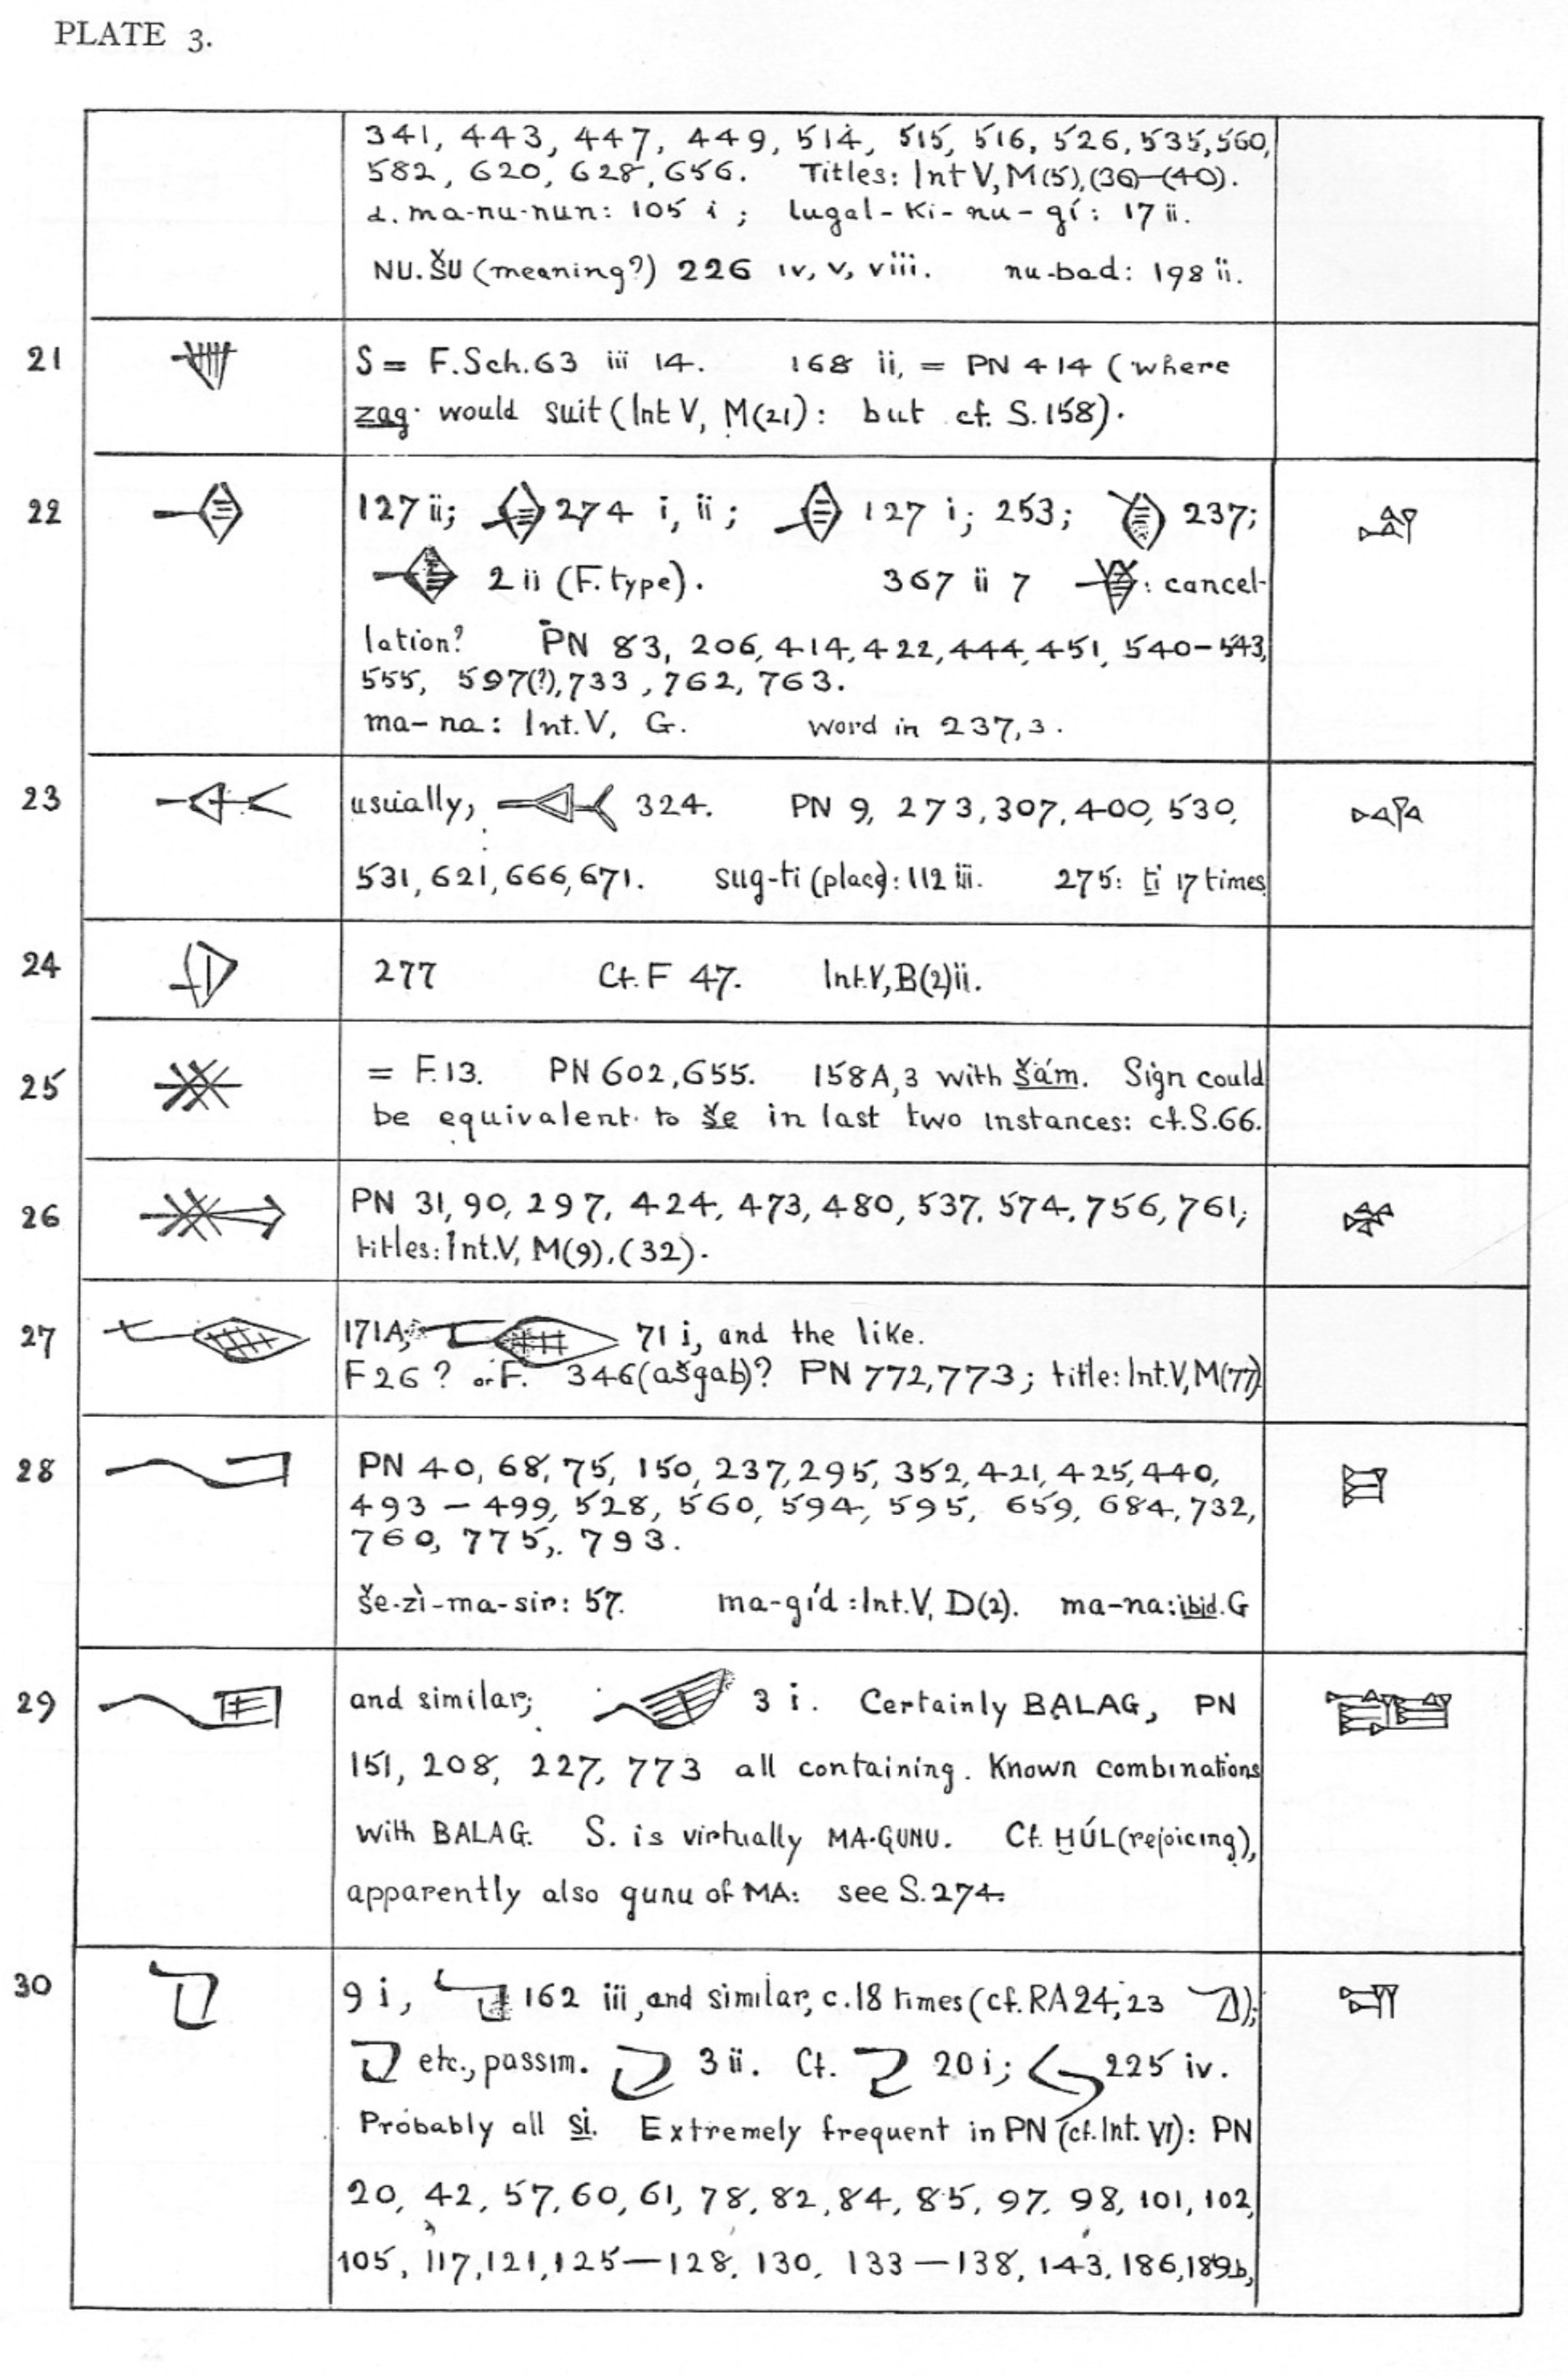 PLATE 3.
341, 443, 447, 449, 514, 515, 516, 526, 535, 560,
582, 620, 628, 656. Titles: Int V, M(5), (36)–(40).
d. ma-nu-nun: 105 i; lugal-ki-nu-gí: 17 ii.
NU.ŠU (meaning?) 226 iv, v, viii. nu-bad: 198 ii.
21 S = F.Sch.63 iii 14. 168 ii, = PN 414 (where
zag would suit (Int V, M(21): but cf. S.158).
22 127 ii; 274 i, ii; 127 i; 253; 237;
2 ii (F. type). 367 ii 7 : cancel-
lation? PN 83, 206, 414, 422, 444, 451, 540–543,
555, 597(?), 733, 762, 763.
ma-na: Int. V, G. word in 237, 3.
23 usually, 324. PN 9, 273, 307, 400, 530,
531, 621, 666, 671. sug-ti (place): 112 iii. 275: ti 17 times
24 277 Cf. F 47. Int. V, B(2) ii.
25 = F.13. PN 602, 655. 158A, 3 with šám. Sign could
be equivalent to še in last two instances: cf. S.66.
26 PN 31, 90, 297, 424, 473, 480, 537, 574, 756, 761;
titles: Int. V, M(9), (32).
27 171A; 71 i, and the like.
F 26? or F. 346 (ašgab)? PN 772, 773; title: Int. V, M(77)
28 PN 40, 68, 75, 150, 237, 295, 352, 421, 425, 440,
493 – 499, 528, 560, 594, 595, 659, 684, 732,
760, 775, 793.
še-zì-ma-sir: 57. ma-gíd: Int. V, D(2). ma-na: ibid. G
29 and similar; 3 i. Certainly BALAG, PN
151, 208, 227, 773 all containing. Known combinations
with BALAG. S. is virtually MA-GUNU. Cf. ḪÚL (rejoicing),
apparently also gunu of MA: see S.274.
30 9 i, 162 iii, and similar, c. 18 times (cf. RA 24, 23 );
etc., passim. 3 ii. Cf. 20 i; 225 iv.
Probably all si. Extremely frequent in PN (cf. Int. VI): PN
20, 42, 57, 60, 61, 78, 82, 84, 85, 97, 98, 101, 102,
105, 117, 121, 125–128, 130, 133–138, 143, 186, 189b,